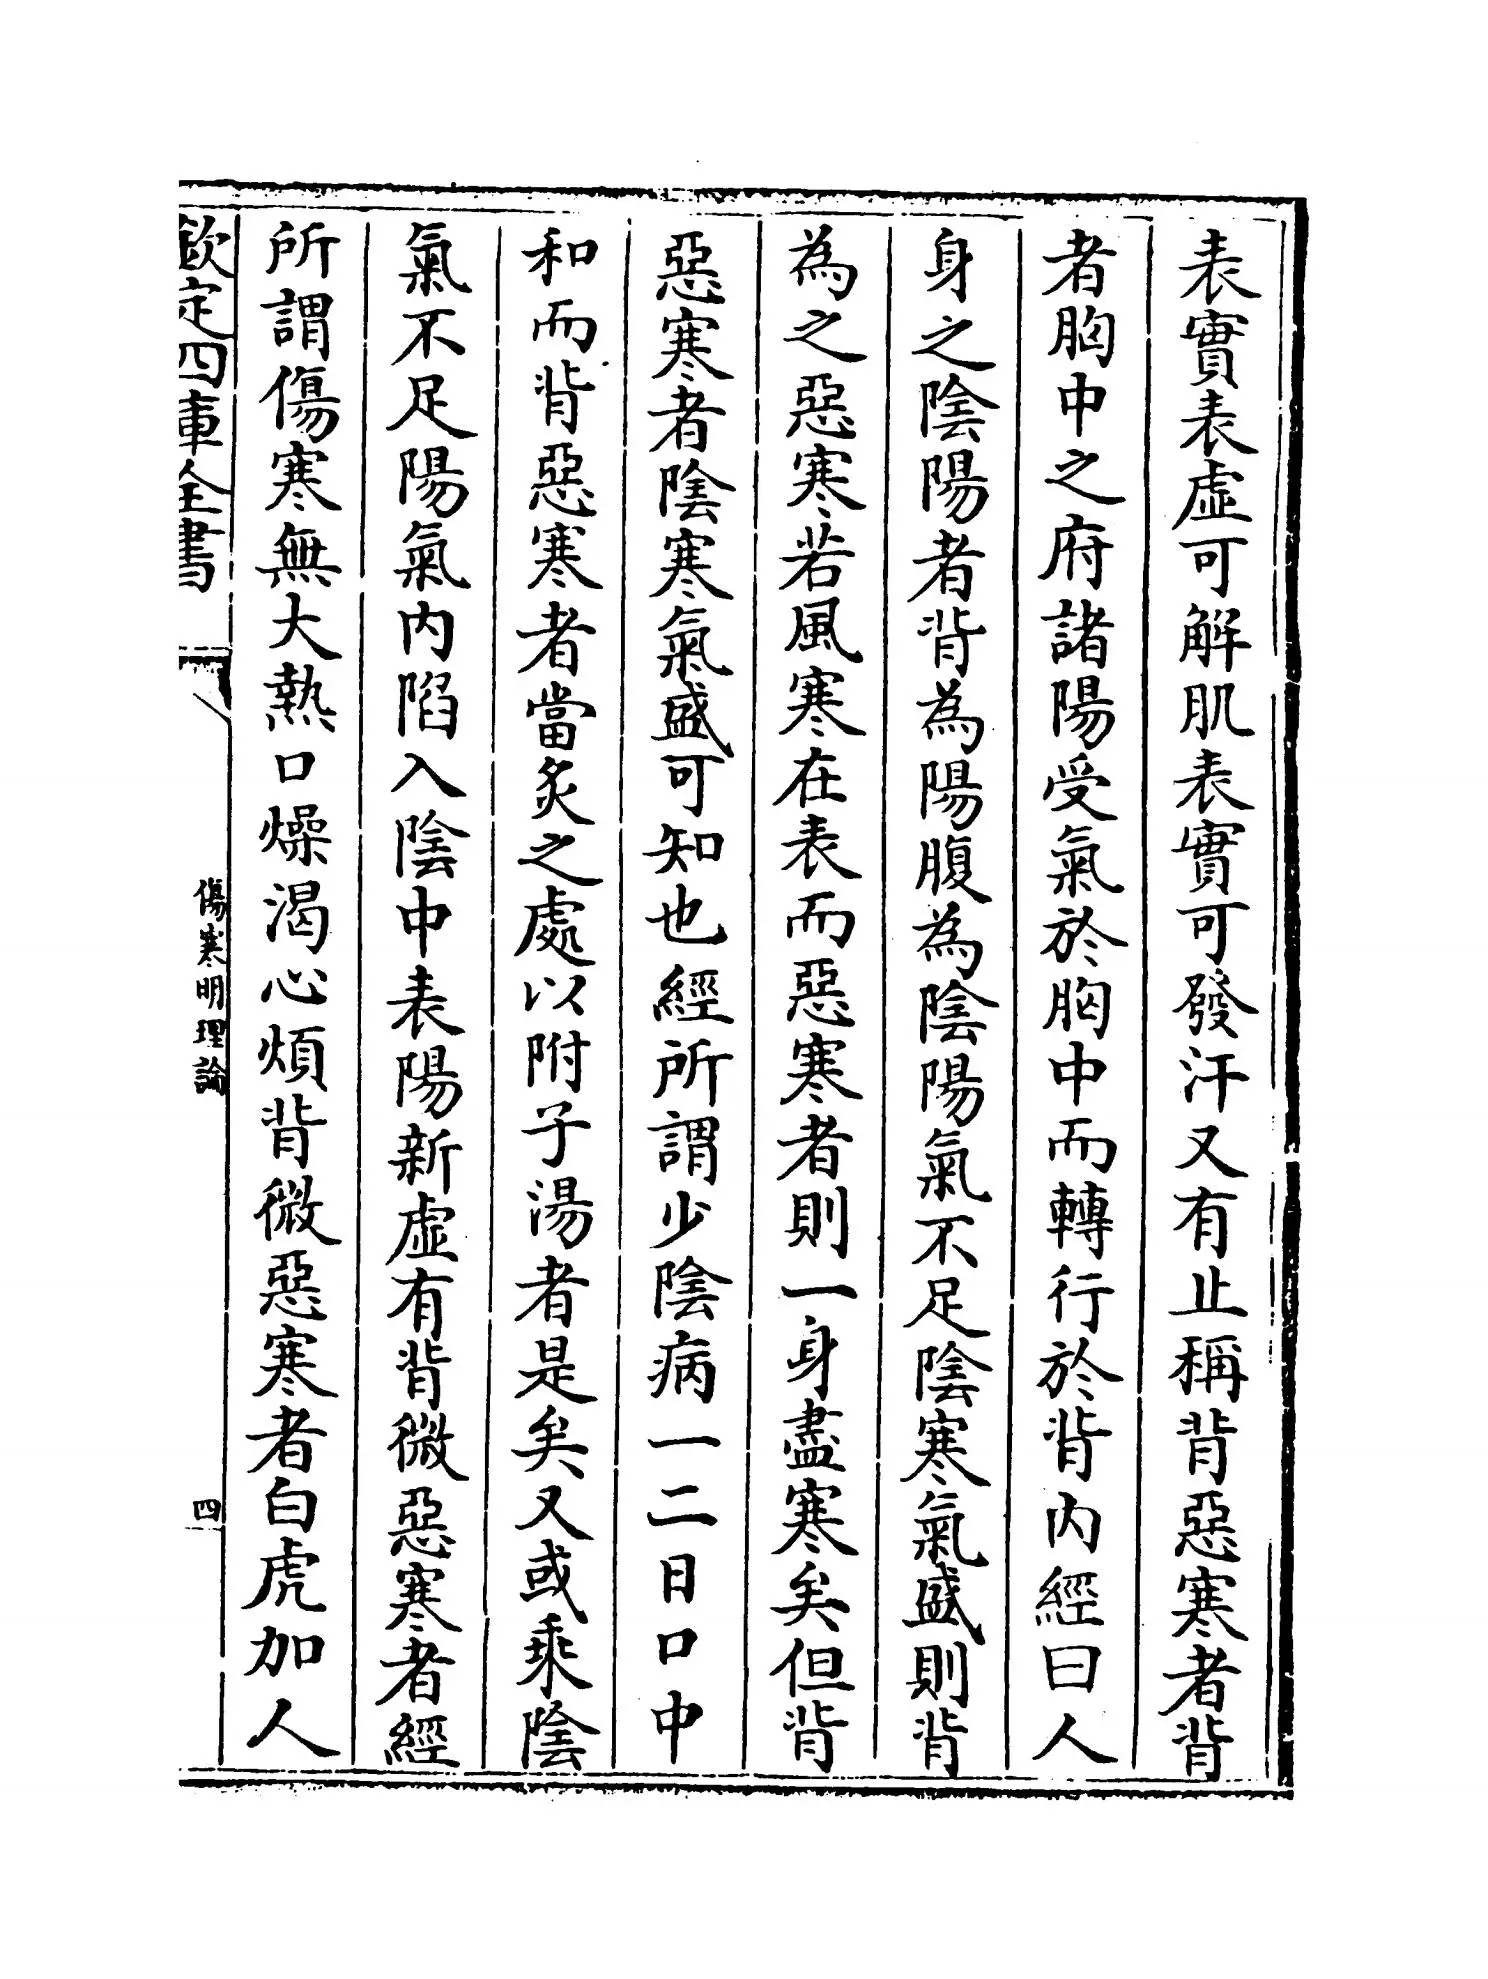 表實表虛可解肌表實可發汗又有止稱背惡寒者背
者胸中之府諸陽受氣於胸中而轉行於背內經曰人
身之陰陽者背為陽腹為陰陽氣不足陰寒氣盛則背
為之惡寒若風寒在表而惡寒者則一身盡寒矣但背
惡寒者陰寒氣盛可知也經所謂少陰病一二日口中
和而背惡寒者當炙之處以附子湯者是矣又或乘陰
氣不足陽氣內陷入陰中表陽新虛有背微惡寒者經
所謂傷寒無大熱口燥渴心煩背微惡寒者白虎加人
欽定四庫全書
傷寒明理論
四